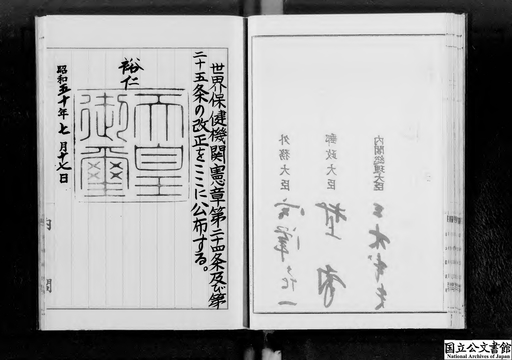 世界保健機関憲章第二十四条及び第
二十五条の改正をここに公布する。
裕仁
天皇
御璽
昭和五十年七月十七日
内閣
内閣総理大臣
三木武夫
郵政大臣
村上勇
外務大臣
宮澤喜一
国立公文書館
National Archives of Japan